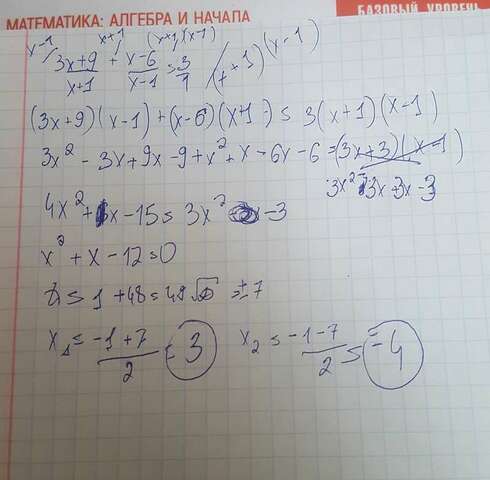 МАТЕМАТИКА: АЛГЕБРА И НАЧАЛА
БАЗОВЫЙ УРОВЕНЬ
x-1 x+1 (x+1)(x-1)
3x+9/x+1 + x-6/x-1 = 3/1 (x+1)(x-1)
(3x+9)(x-1)+(x-6)(x+1) = 3(x+1)(x-1)
3x² - 3x + 9x - 9 + x² + x - 6x - 6 = (3x+3)(x-1)
3x² - 3x + 3x - 3
4x² + x - 15 = 3x² - 3
x² + x - 12 = 0
D = 1 + 48 = 49 √D = ±7
x₁ = -1+7/2 = 3 x₂ = -1-7/2 = -4